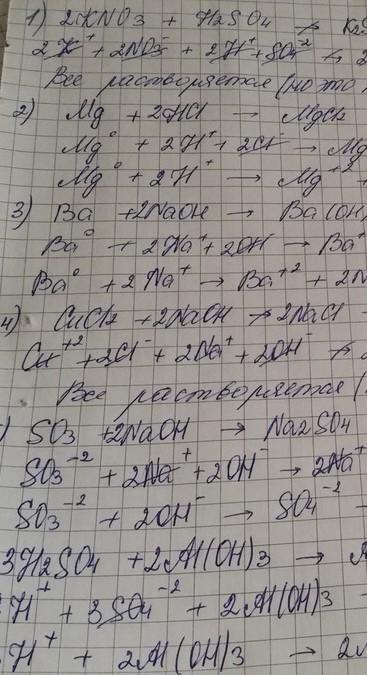 1) 2KNO3 + H2SO4 ↛ K2S
2K⁺ + 2NO3⁻ + 2H⁺ + SO4⁻² ↛ 2
Все растворяется (но это
2) Mg + 2HCl → MgCl2
Mg⁰ + 2H⁺ + 2Cl⁻ → Mg
Mg⁰ + 2H⁺ → Mg⁺² +
3) Ba + 2NaOH → Ba(OH)
Ba⁰ + 2Na⁺ + 2OH⁻ → Ba⁺
Ba⁰ + 2Na⁺ → Ba⁺² + 2N
4) CuCl2 + 2NaOH ↛ 2NaCl +
Cu⁺² + 2Cl⁻ + 2Na⁺ + 2OH⁻ ↛
Все растворяется (
) SO3 + 2NaOH → Na2SO4
SO3⁻² + 2Na⁺ + 2OH⁻ → 2Na⁺
SO3⁻² + 2OH⁻ → SO4⁻² +
3H2SO4 + 2Al(OH)3 → A
H⁺ + 3SO4⁻² + 2Al(OH)3
H⁺ + 2Al(OH)3 → 2